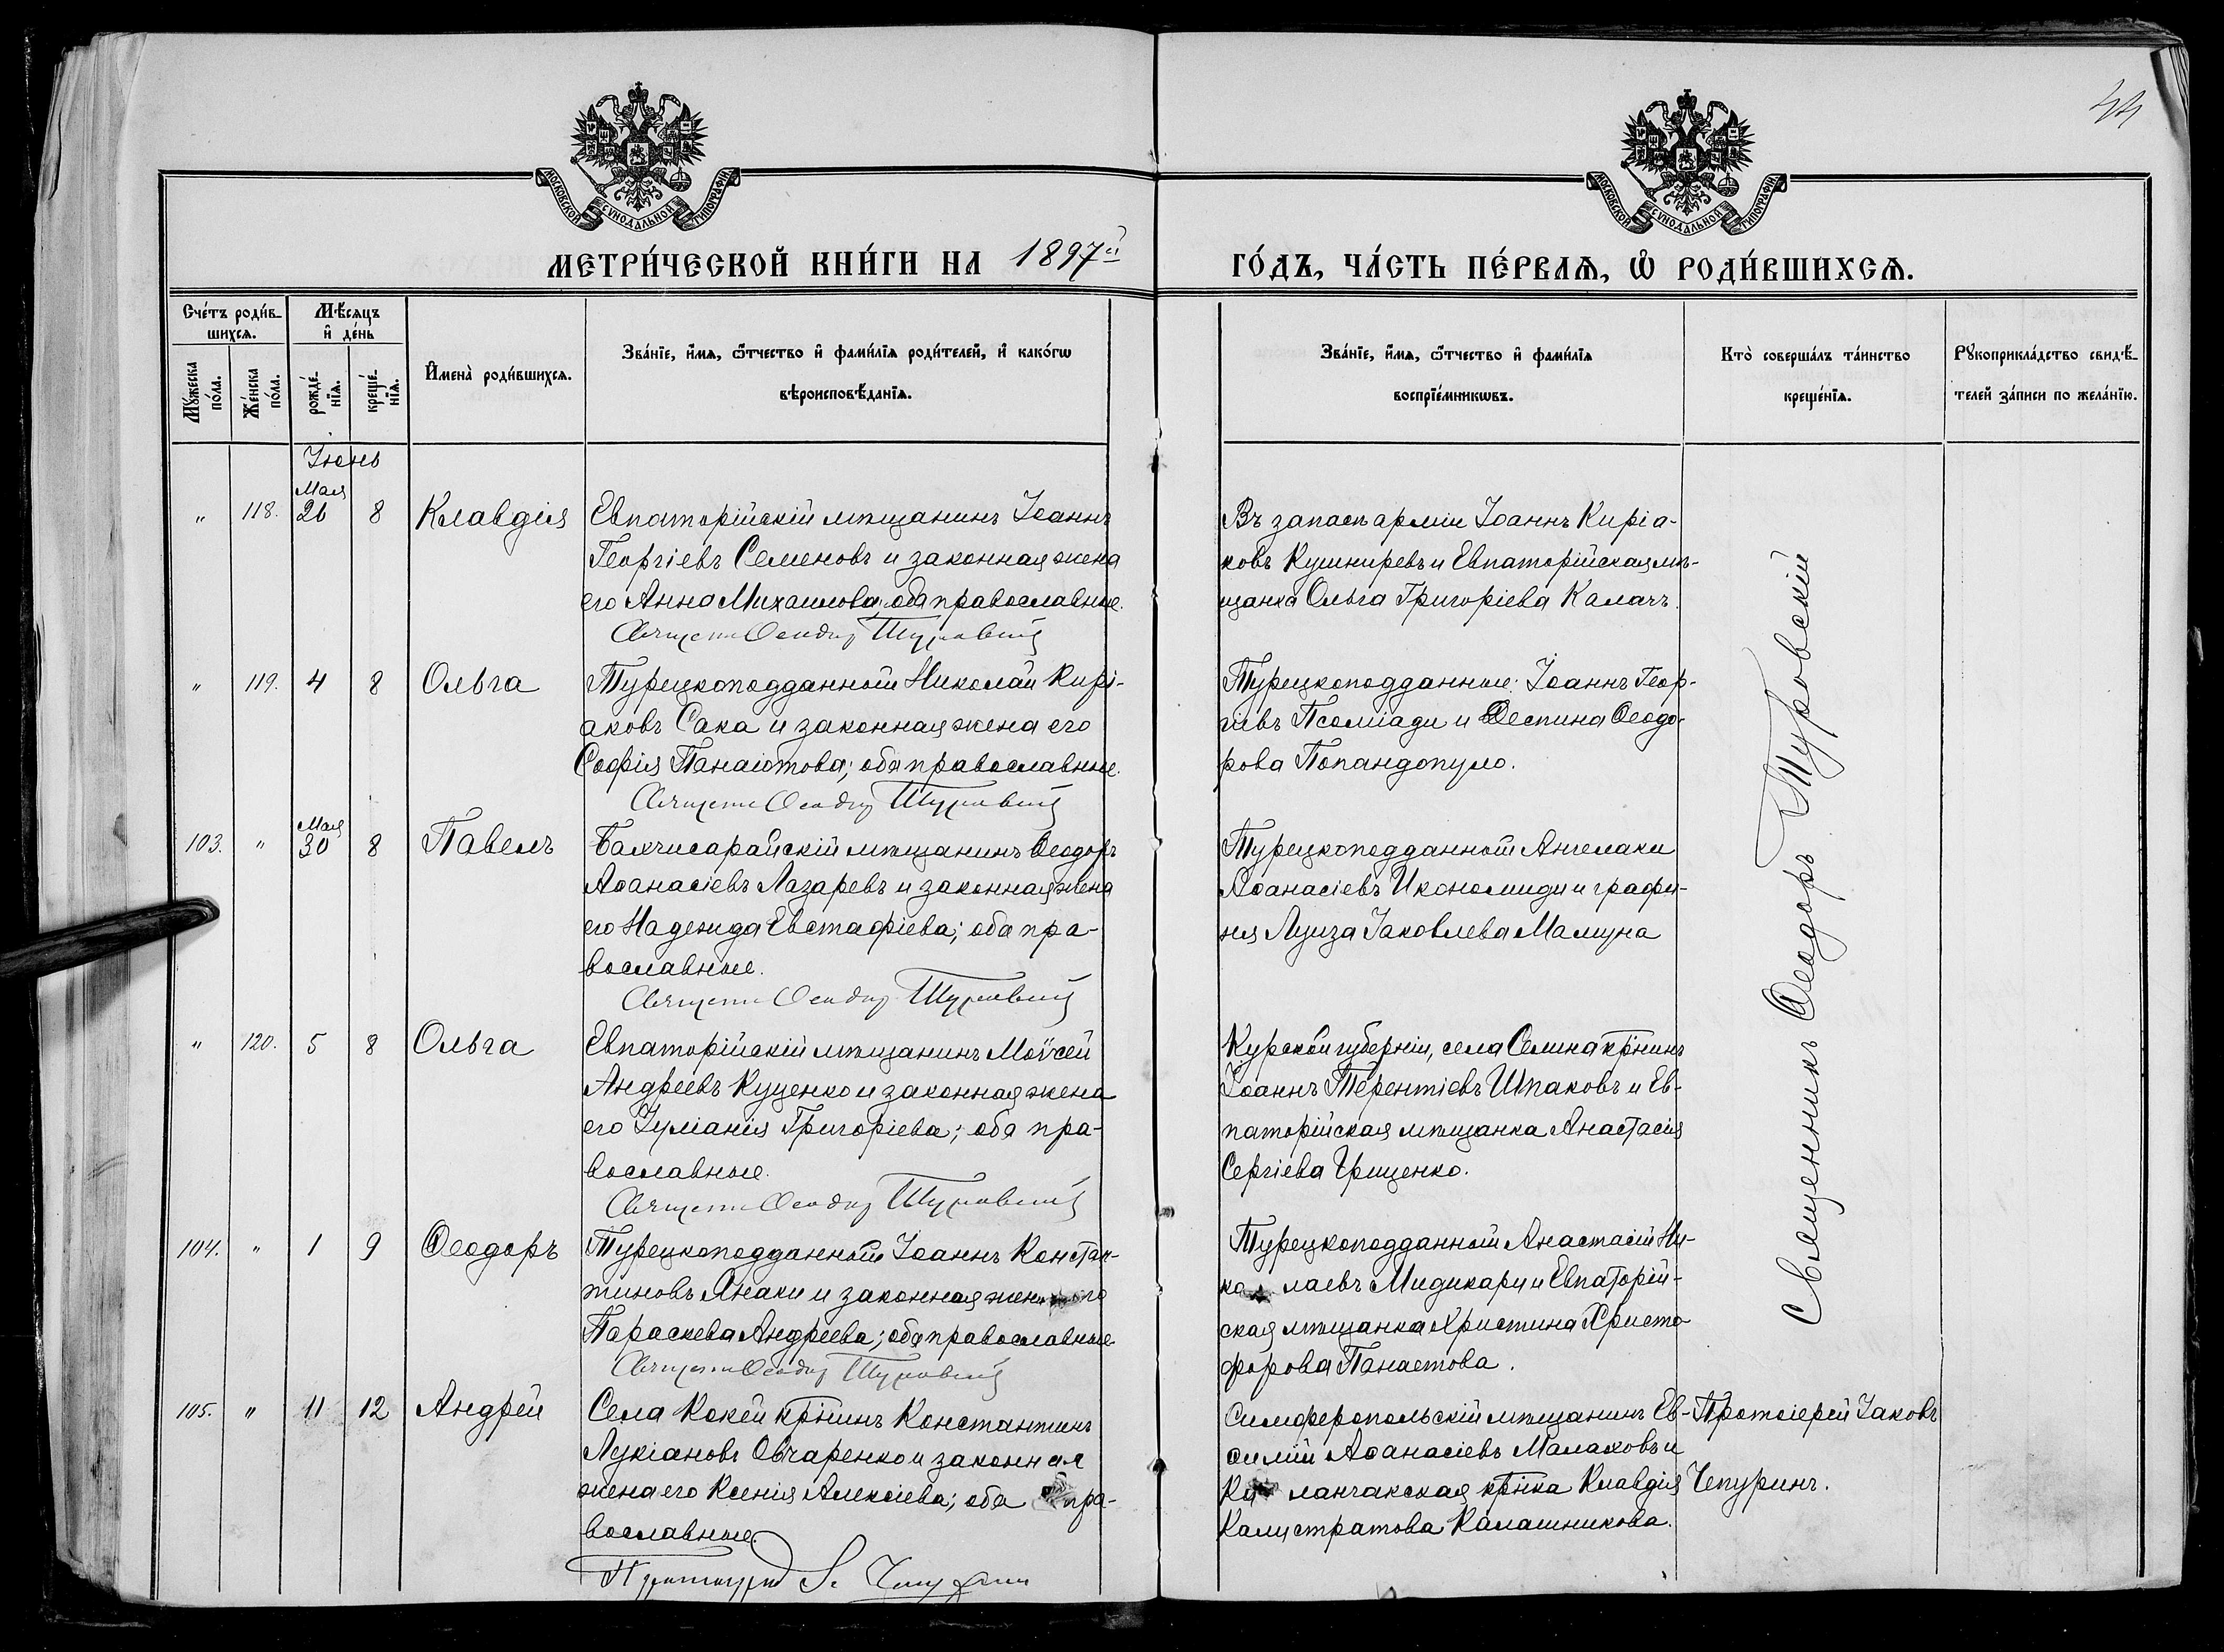 44
МОСКОВСКОЙ СѴНОДАЛЬНОЙ ТИПОГРАФІИ
МОСКОВСКОЙ СѴНОДАЛЬНОЙ ТИПОГРАФІИ
МЕТРИ́ЧЕСКОЙ КНИ́ГИ НА 1897й
ГО́ДЪ, ЧА́СТЬ ПЕ́РВАѦ, Ѡ҆ РОДИ́ВШИХСѦ.
Сче́тъ роди́в-
шихсѧ.
Мѣ́сѧцъ
и҆ де́нь
Мꙋ́жеска
по́ла.
Же́нска
по́ла.
рожде́-
нїѧ.
креще́-
нїѧ.
И҆мена̀ роди́вшихсѧ.
Зва́нїе, и҆́мѧ, ѻ҆́тчество и҆ фами́лїѧ роди́телей, и҆ како́гѡ
вѣроисповѣ́данїѧ.
Зва́нїе, и҆́мѧ, ѻ҆́тчество и҆ фами́лїѧ
воспрїе́мникѡвъ.
Кто̀ соверша́лъ та́инство
креще́нїѧ.
Рꙋкоприкла́дство свидѣ́-
телей за́писи по жела́нїю.
Іюнь
Мая
" 118. 26 8 Клавдія
Евпаторійскій мѣщанинъ Іоаннъ
Георгіевъ Семеновъ и законная жена
его Анна Михаилова; оба православные.
Священ Ѳеодор Туровскій
Въ запасѣ арміи Іоаннъ Киріа-
ковъ Кушниревъ и Евпаторійская мѣ-
щанка Ольга Григоріева Калачъ.
" 119. 4 8 Ольга
Турецкоподданный Николай Кирі-
аковъ Сака и законная жена его
Софія Панаіотова; оба православные.
Священ Ѳеодор Туровскій
Турецкоподданные: Іоаннъ Геор-
гіевъ Псоміади и Деспина Ѳеодо-
рова Попандопуло.
Мая
103. " 30 8 Павелъ
Бахчисарайскій мѣщанинъ Ѳеодоръ
Аѳанасіевъ Лазаревъ и законная жена
его Надежда Евстафіева; оба пра-
вославные.
Священ Ѳеодор Туровскій
Турецкоподданный Ангелаки
Аѳанасіевъ Икономиди и графи-
ня Луиза Іаковлева Мамуна
" 120. 5 8 Ольга
Евпаторійскій мѣщанинъ Моѵсей
Андреевъ Куценко и законная жена
его Іуліанія Григоріева; оба пра-
вославные.
Священ Ѳеодор Туровскій
Курской губерніи, села Селина кр̃нинъ
Іоаннъ Терентіевъ Шпаковъ и Ев-
паторійская мѣщанка Анастасія
Сергіева Грищенко.
104. " 1 9 Ѳеодоръ
Турецкоподданный Іоаннъ Констан-
тиновъ Янаки и законная жена его
Параскева Андреева; оба православные
Священ Ѳеодор Туровскій
Турецкоподданный Анастасій Ни-
ко лаевъ Мидикари и Евпаторій-
ская мѣщанка Христина Христо-
форова Панаетова.
Священникъ Ѳеодоръ Туровскій
105. " 11 12 Андрей
Села Кокей кр̃нинъ Константинъ
Лукіановъ Овчаренко и законная
жена его Ксенія Алексіева; оба пра-
вославные.
Протоіерей Чепурин
Симферопольскій мѣщанинъ Ев-
ѳимій Аѳанасіевъ Малаховъ и
Ка ланчакская кр̃нка Клавдія
Калистратова Калашникова.
Протоіерей Іаковъ
Чепуринъ.